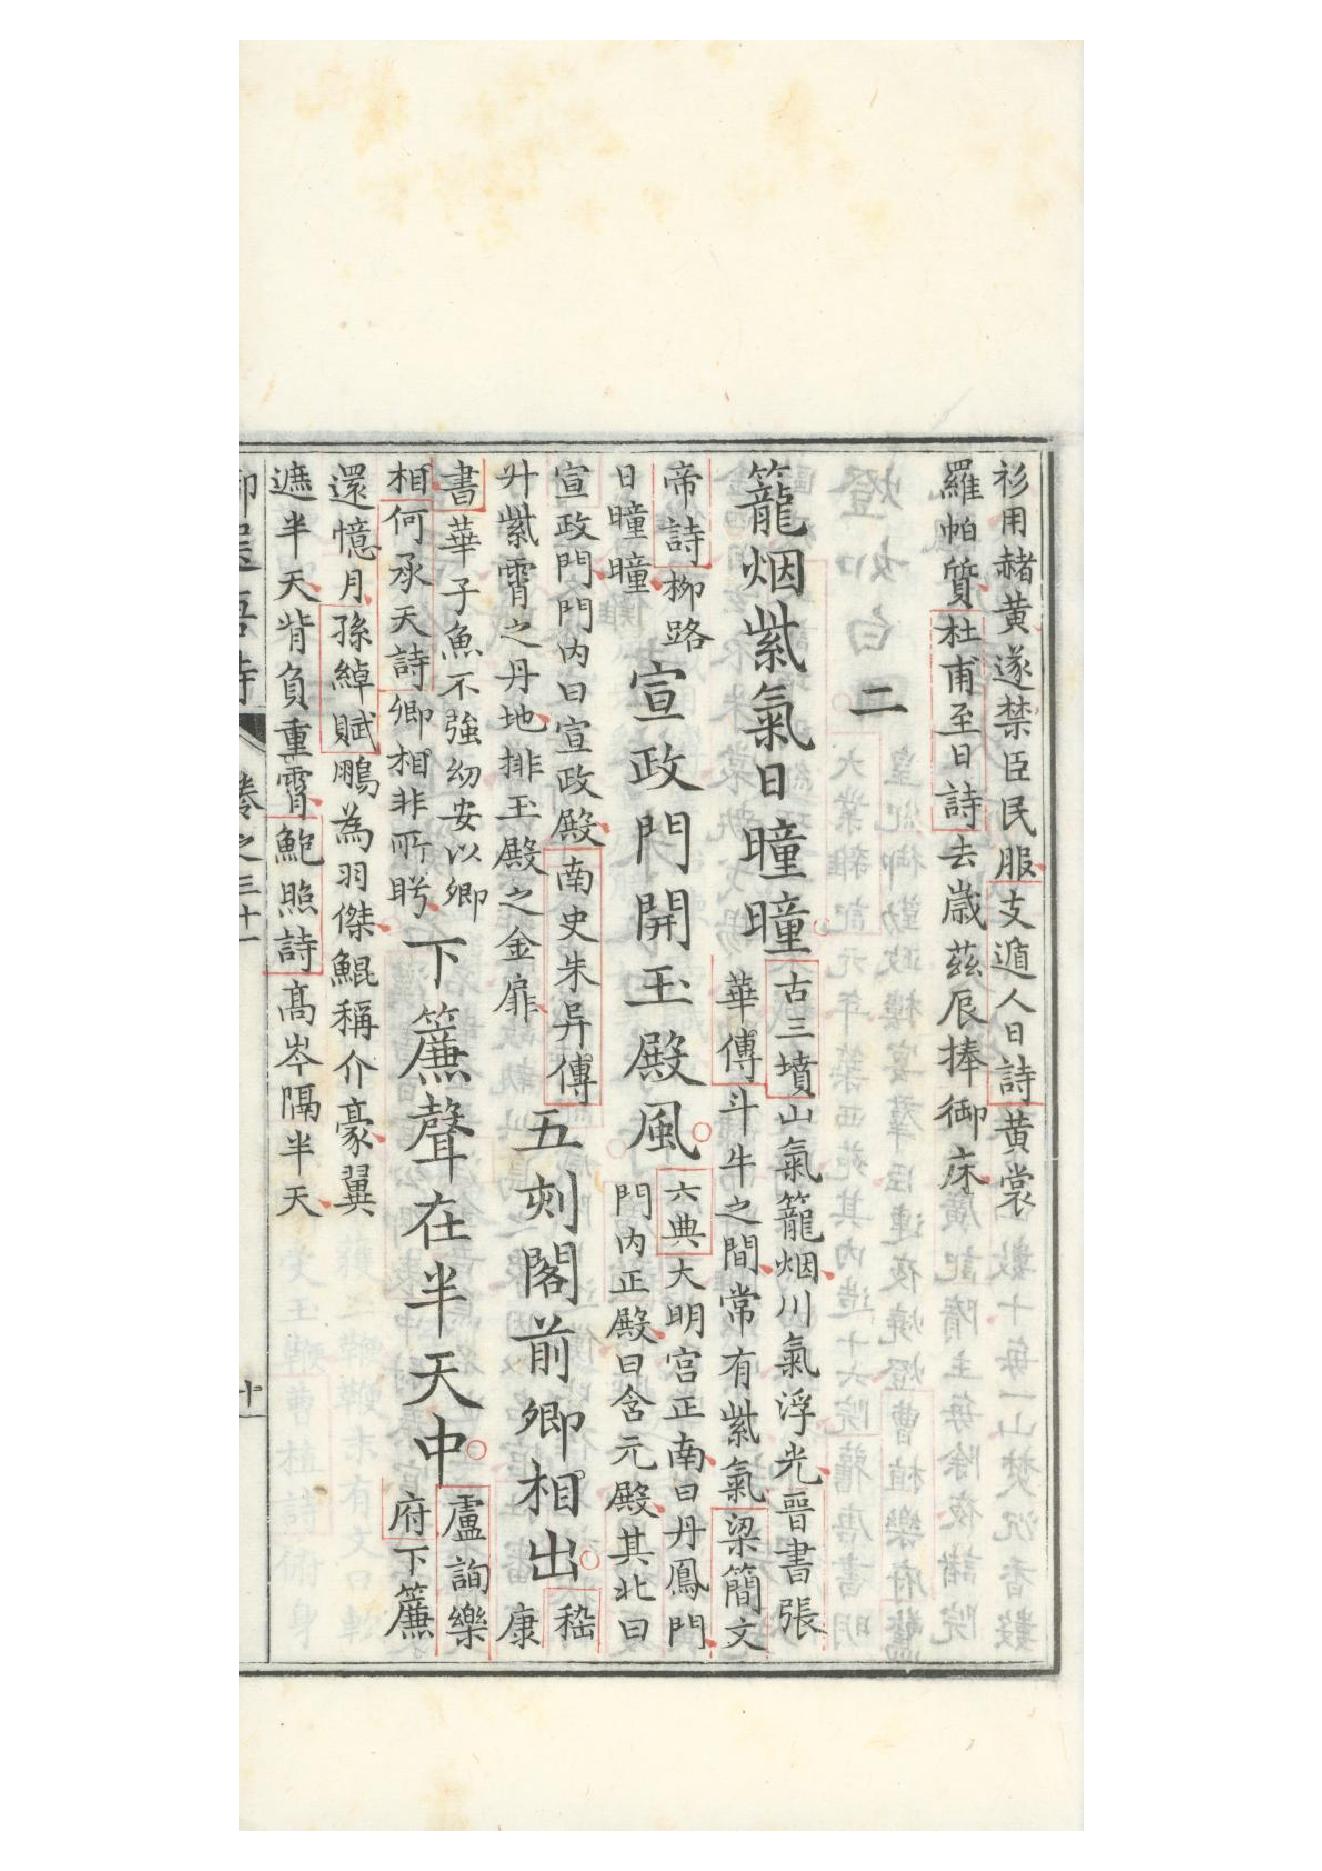 衫用赭黄遂禁臣民服支遁人日詩黄裳
羅帕質杜甫至日詩去歲茲辰捧御床
二
籠烟紫氣日曈曈古三墳山氣籠烟川氣浮光晉書張
華傳斗牛之間常有紫氣梁簡文
帝詩柳路
日曈曈
宣政門開玉殿風六典大明宫正南曰丹鳳門
門内正殿曰含元殿其北曰
宣政門門内曰宣政殿南史朱异傳
升紫霄之丹地排玉殿之金扉
五刻閣前卿相出嵇
康
書華子魚不強幼安以卿
相何承天詩卿相非所盻
下簾聲在半天中盧詢樂
府下簾
還憶月孫綽賦鵬為羽傑鯤稱介豪翼
遮半天背負重霄鮑照詩高岑隔半天
卷之三十一
十